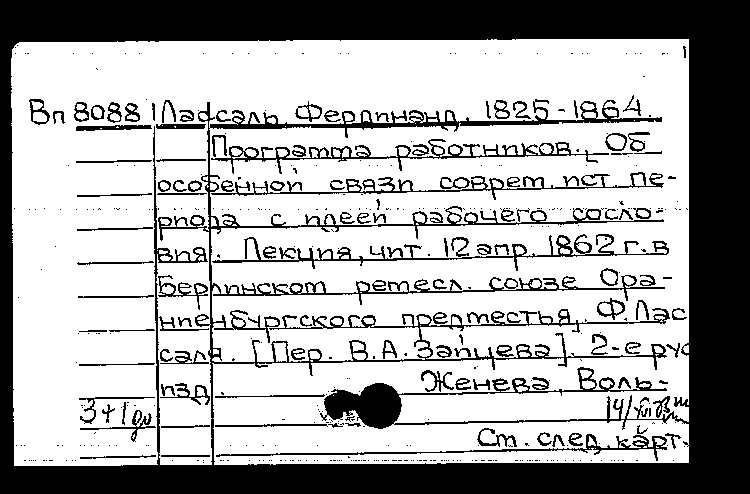 Вп 8088 Лассаль, Фердинанд. 1825-1864.
Программа работников. Об
особенной связи соврем. ист. пе-
риода с идеей рабочего сосло-
вия. Лекция, чит. 12 апр. 1862 г. в
Берлинском ремесл. союзе Ора-
ниенбургского предместья, Ф. Лас
саля. [Пер. В.А. Зайцева]. 2-е рус
изд. Женева, Воль-
3+1
Ст. след. карт.